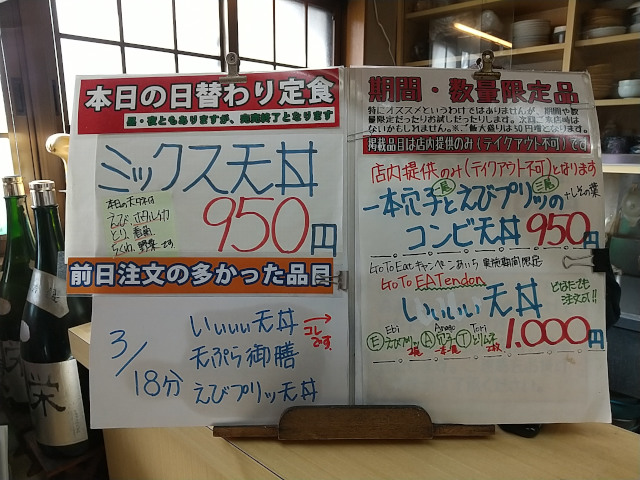 本日の日替わり定食
昼・夜ともありますが、売切終了となります
ミックス天丼
本日の天ダネは
えび ホタルイカ
とり 春菊
ちくわ 野菜 です
950円
前日注文の多かった品目
3/18分
いぃぃぃ天丼
天ぷら御膳
えびプリッツ天丼
コレです。
期間・数量限定品
特にオススメというわけではありませんが、期間や数
量限定だったりお試しだったりします。次回ご来店時は
ないかもしれません。※ご飯大盛りは50円増となります。
掲載品目は店内提供のみ(テイクアウト不可)です
店内提供のみ(テイクアウト不可)となります
一本穴子とえびプリッツの
二尾
+しその葉
コンビ天丼 950円
GoToEatキャンペーンあいち 実施期間限定
GoTo EATendon
いぃぃぃ天丼
どなたでも
注文可!!
Ebi Anago Tori
Ⓔえびプリッツ Ⓐ穴子 Ⓣとりムネ
1,000円
栄